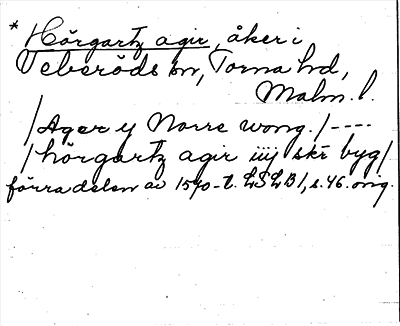 * Hörgartz agir, åker i
Veberöds sn, Torna hd,
Malm. l.
/Ager y Norre wong./----
/hörgartz agir iiij skr byg/
förra delen av 1570-t. LSLB1, s. 46. orig.